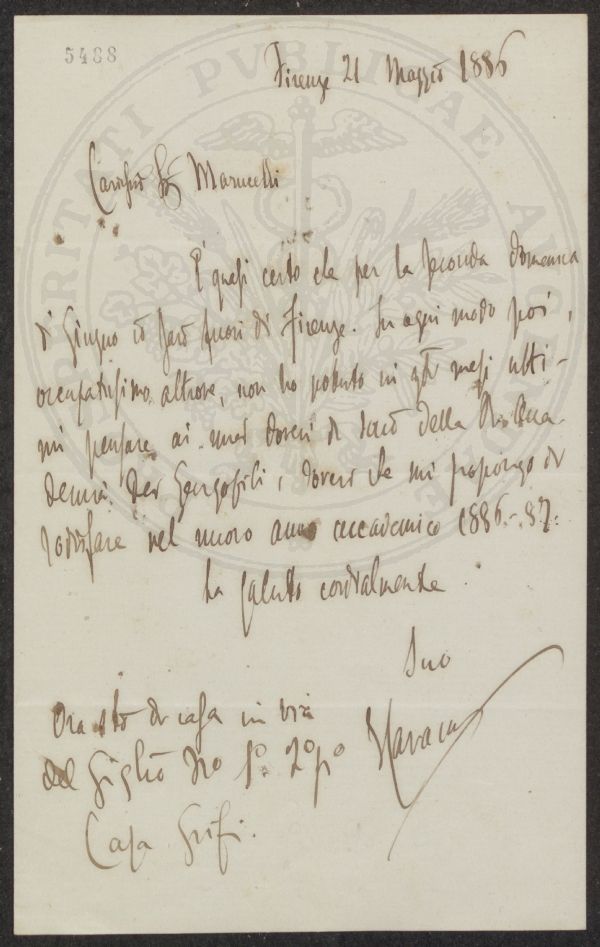 5488
Firenze 21 Maggio 1886
Carissimo Sig Marucelli
È quasi certo che per la seconda domenica
di Giugno io sarò fuori di Firenze. In ogni modo poi,
occupatissimo altrove, non ho potuto in qti mesi ulti-
mi pensare ai miei doveri di socio della R. Acca
demia dei Georgofili, doveri che mi propongo di
soddisfare nel nuovo anno accademico 1886-87.
La saluto cordialmente
Suo
Ora sto di casa in via
del Giglio No 2o po
Casa Grifi.
PROSPERITATI PUBLICAE AUGENDAE